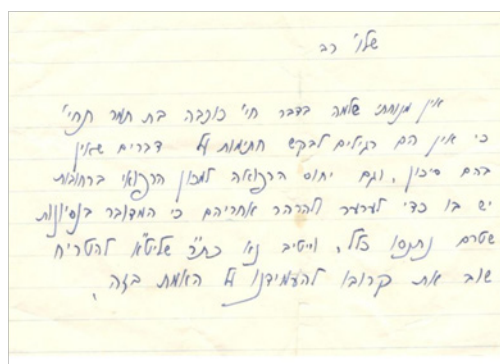 שלו' רב
אין מנוחתי שלמה בדבר חי' כוכבה בת תמר תחי'
כי אין הם רגילים לבקש חתימות על דברים שאין
בהם סיכון, וגם יחוס הרפואה למכון הרפואי ברחובות
יש בו כדי לערער ולהרהר אחריהם כי המדובר בנסיונות
שטרם נתנסו כלל, וייטיב נא כת"ר שליט"א להטריח
שוב את קרובו להעמידנו על האמת בזה.